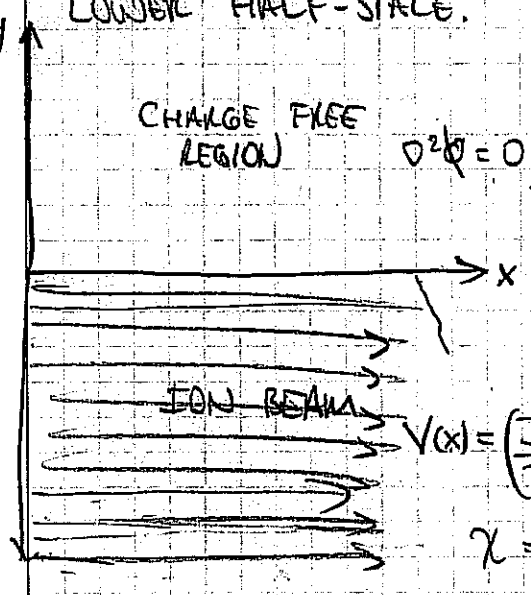 LOWER HALF-SPACE.
y
CHARGE FREE
REGION ∇²φ = 0
x
ION BEAM
V(x) = (
χ =